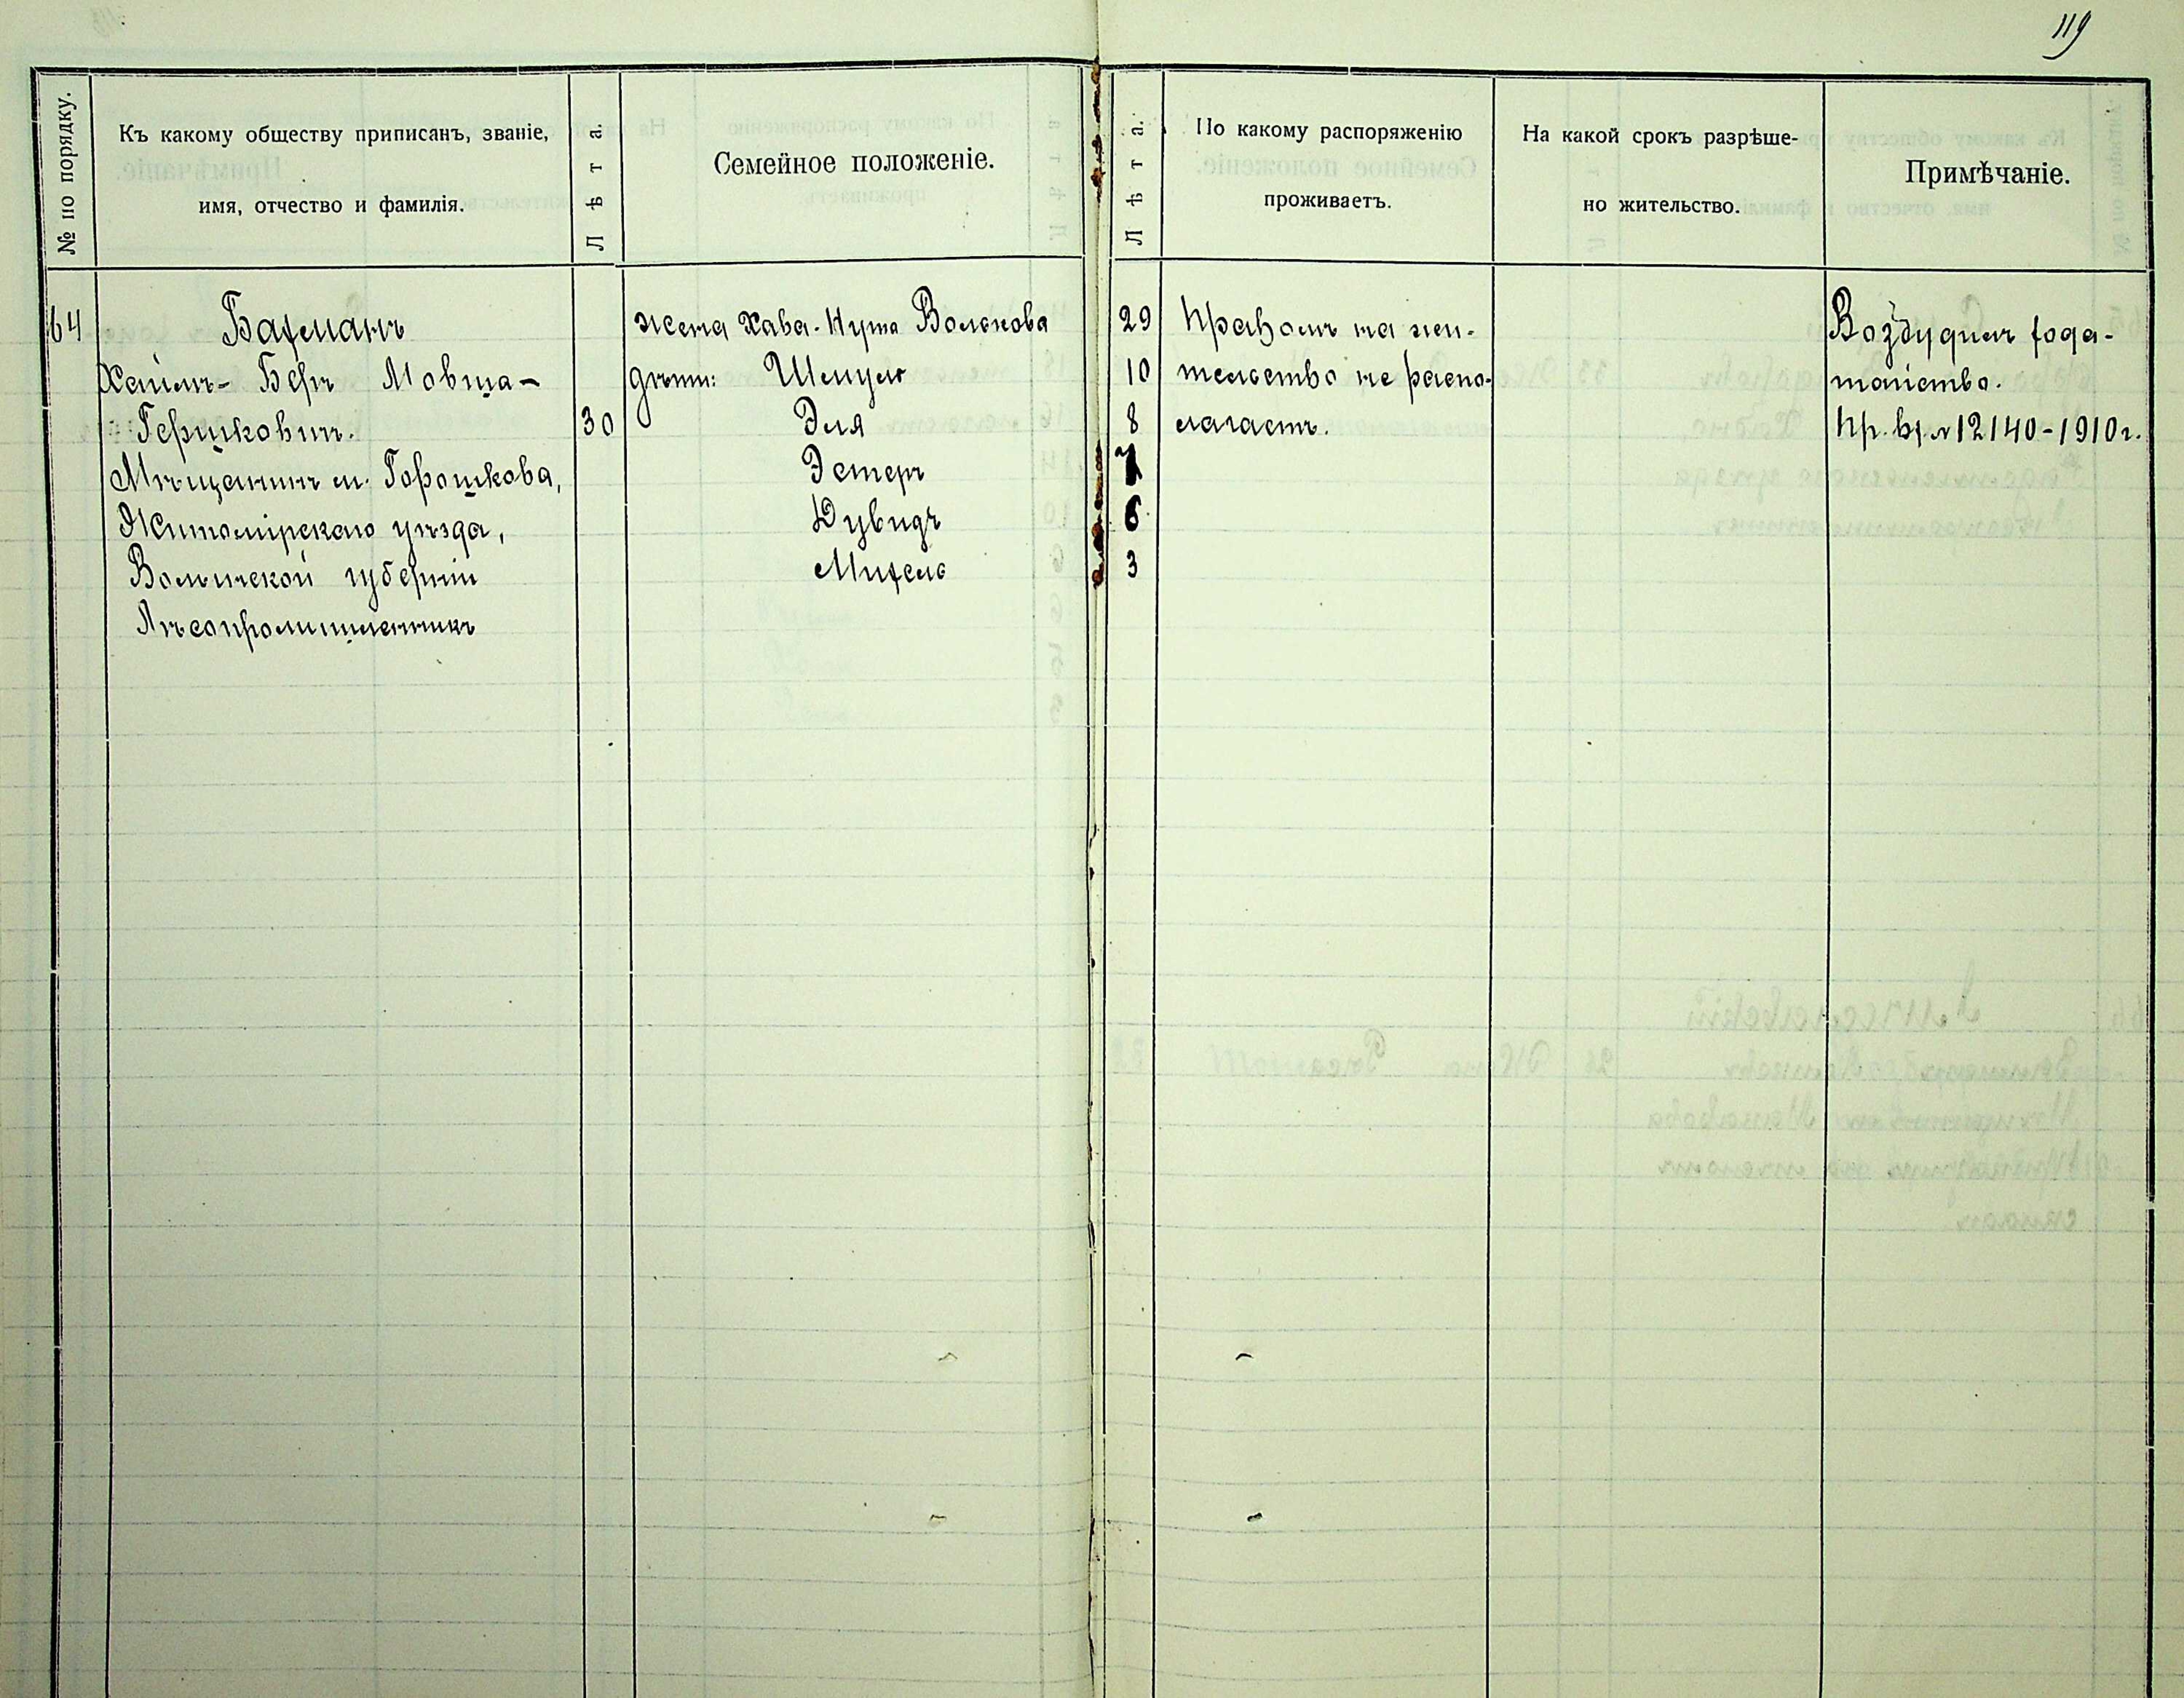 119
№ по порядку.
Къ какому обществу приписанъ, званіе,
имя, отчество и фамилія.
Лѣта.
Семейное положеніе.
Лѣта.
По какому распоряженію
проживаетъ.
На какой срокъ разрѣше-
но жительство.
Примѣчаніе.
64
Бахманъ
Хаимъ-Беръ Мовша-
Гершковичъ.
30
Мѣщанинъ м. Горошкова,
Житомірскаго уѣзда,
Волынской губерніи
Лѣсопромышленникъ
жена Хава-Нута Волькова
29
дѣти: Шмуль
10
Эля
8
Эстеръ
7
Дувидъ
6
Михель
3
Правомъ на жи-
тельство не распо-
лагаетъ.
Возбудилъ хода-
тайство.
Пр. вх. № 12140-1910г.